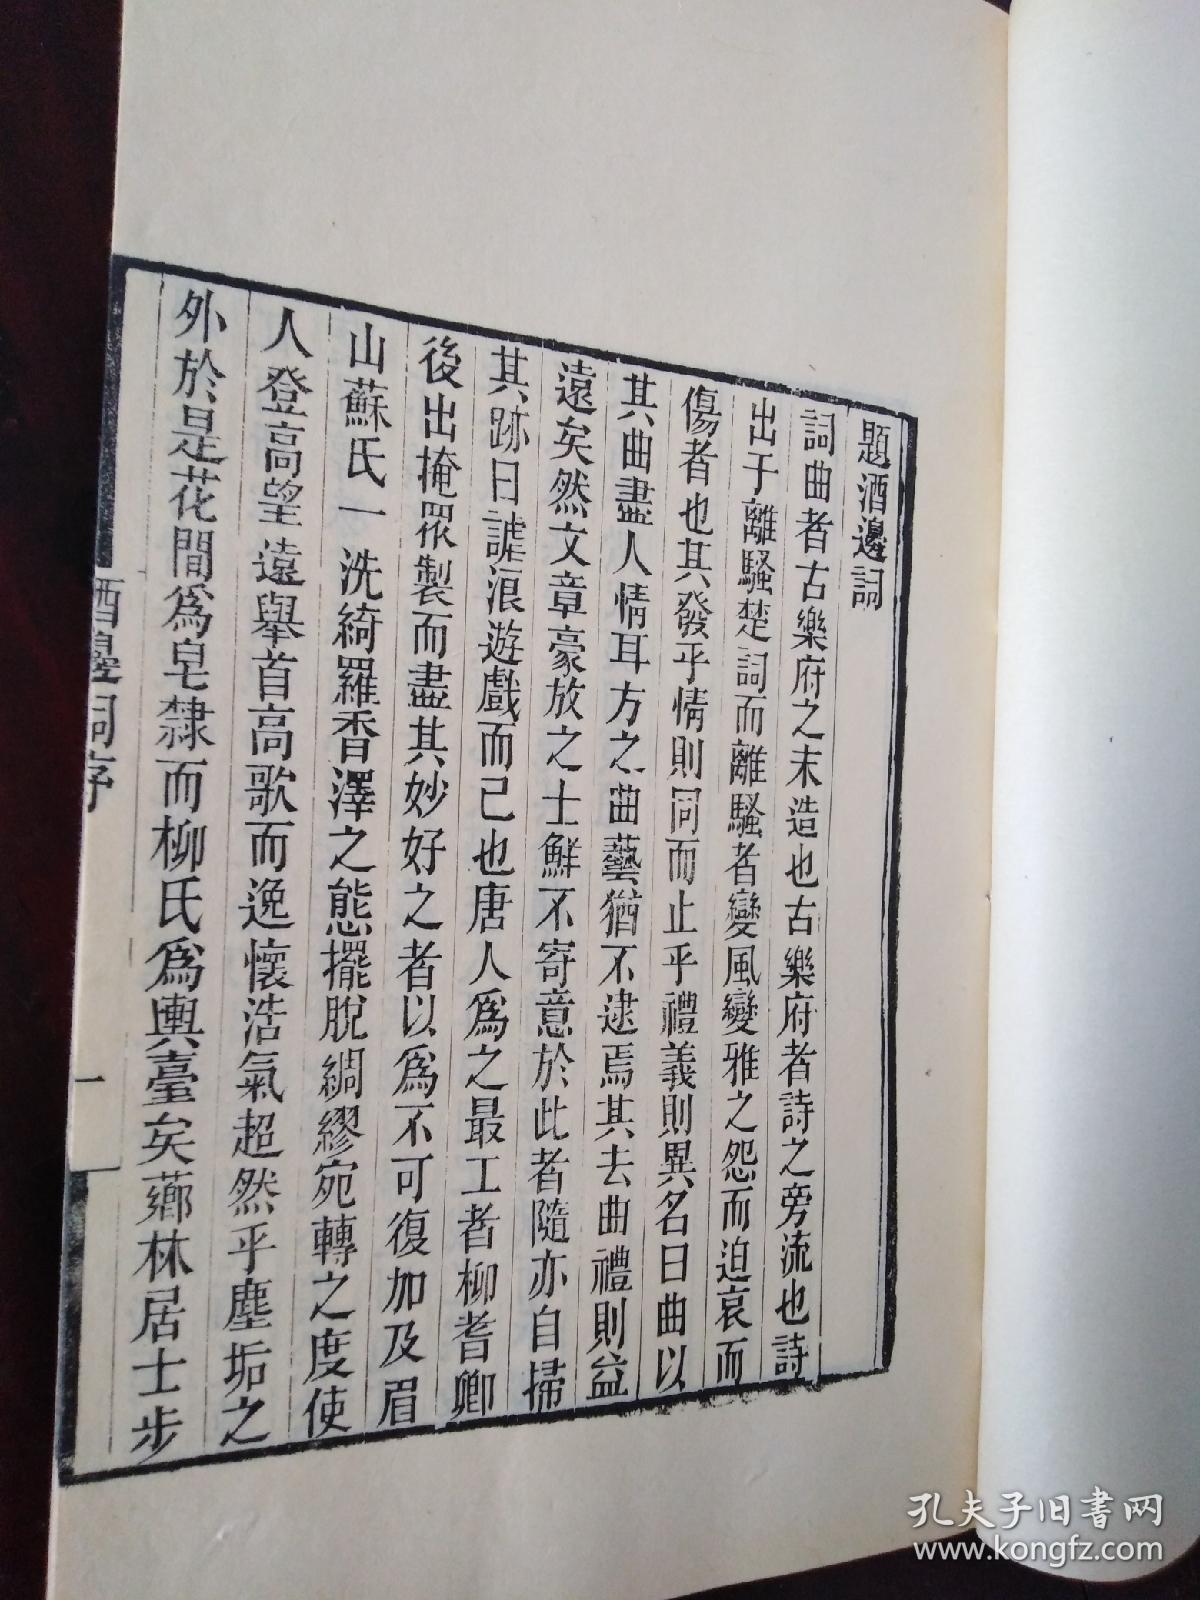 題酒邊詞
詞曲者古樂府之末造也古樂府者詩之旁流也詩
出于離騷楚詞而離騷者變風變雅之怨而迫哀而
傷者也其發乎情則同而止乎禮義則異名曰曲以
其曲盡人情耳方之曲藝猶不逮焉其去曲禮則益
遠矣然文章豪放之士鮮不寄意於此者隨亦自掃
其跡曰謔浪遊戲而已也唐人爲之最工者柳耆卿
後出掩眾製而盡其妙好之者以爲不可復加及眉
山蘇氏一洗綺羅香澤之態擺脫綢繆宛轉之度使
人登高望遠舉首高歌而逸懷浩氣超然乎塵垢之
外於是花間爲皂隸而柳氏爲輿臺矣薌林居士步
酒邊詞序
一
孔夫子旧书网
www.kongfz.com